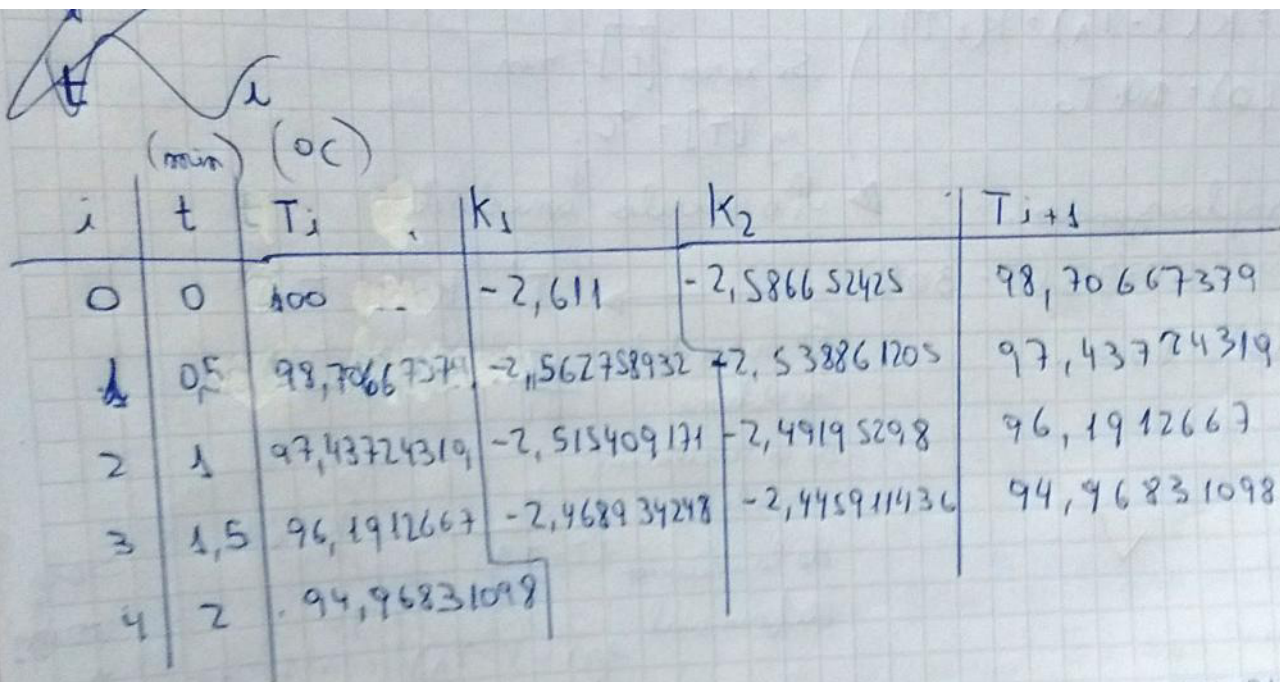 (min) (°C)
i t Ti K1 K2 Ti+1
0 0 100 -2,611 -2,586652425 98,70667379
1 0,5 98,70667379 -2,562758932 -2,538861205 97,43724319
2 1 97,43724319 -2,515409171 -2,49195298 96,1912667
3 1,5 96,1912667 -2,468934248 -2,445911436 94,96831098
4 2 94,96831098